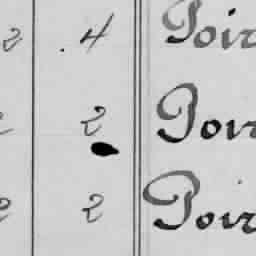 2 4 Poir
2 2 Poir
2 2 Poir